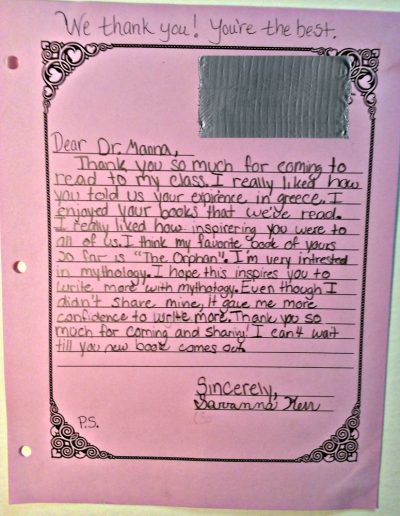 We thank you! You're the best.
Dear Dr. Manna,
Thank you so much for coming to
read to my class. I really liked how
you told us your expirence in greece. I
enjoyed your books that we've read.
I really liked how inspirering you were to
all of us. I think my favorite book of yours
so far is "The Orphan". I'm very intrested
in mythology. I hope this inspires you to
write more with mythology. Even though I
didn't share mine, it gave me more
confidence to write more. Thank you so
much for coming and sharing! I can't wait
till you new book comes out.
Sincerely,
Savanna Kerr
P.S.